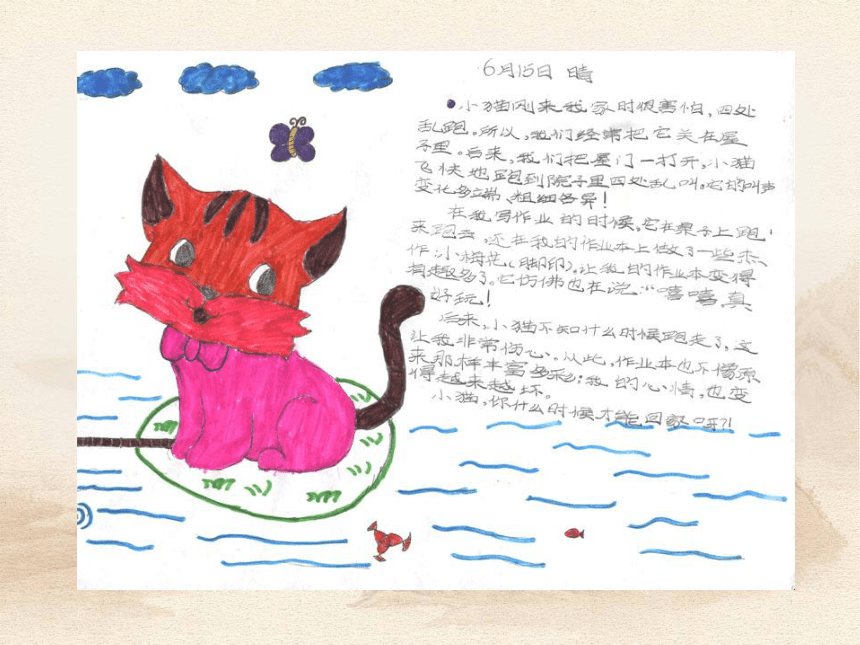 6月15日 晴
小猫刚来我家时很害怕，四处
乱跑。所以，我们经常把它关在屋
子里。后来，我们把屋门一打开，小猫
飞快地跑到院子里四处乱叫。它的叫声
变化多端、粗细各异！
在我写作业的时候，它在桌子上跑
来跑去，还在我的作业本上做了一些
小梅花（脚印）。让我的作业本变得
有趣多了。它仿佛也在说：“嘻嘻，真
好玩！
后来，小猫不知什么时候跑走了，这
让我非常伤心。从此，作业本也不像原
来那样丰富多彩；我的心情，也变
得越来越坏。
小猫，你什么时候才能回家呀？！